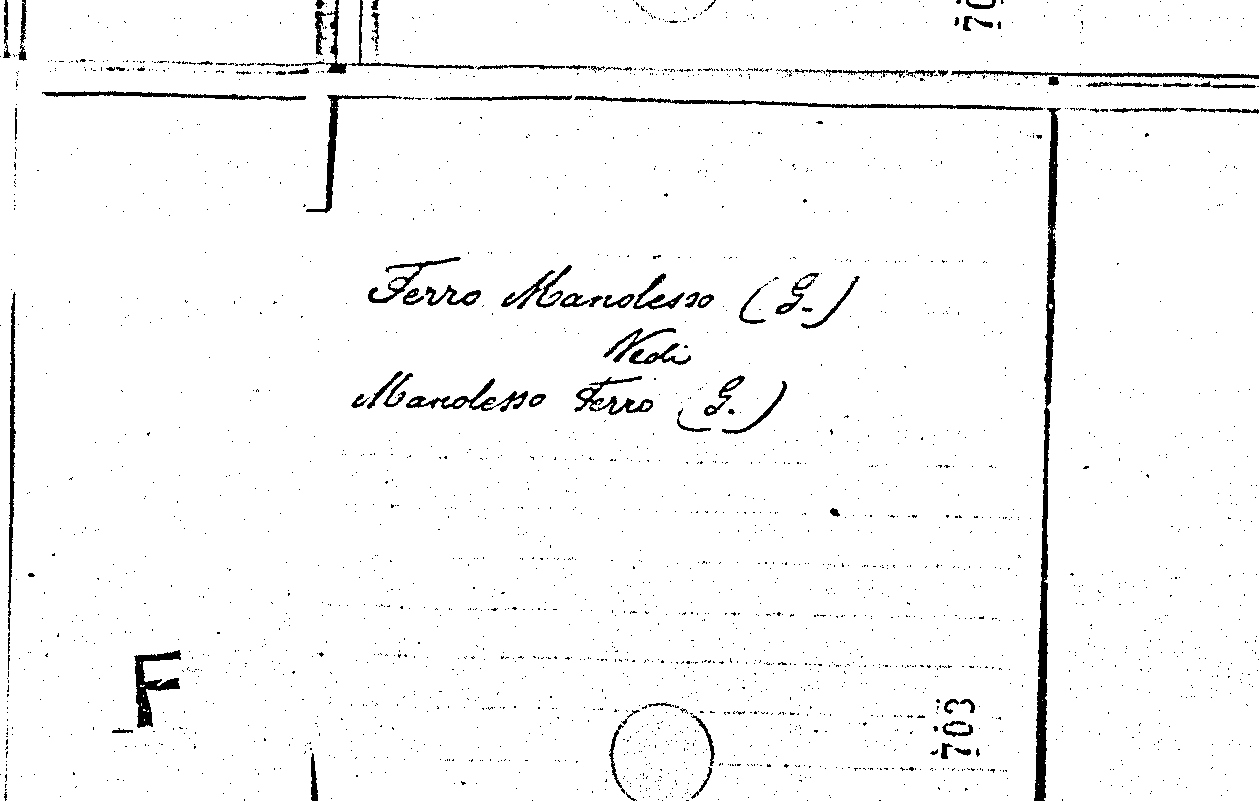 Ferro Manolesso (G.)
Vedi
Manolesso Ferro (G.)
F
703